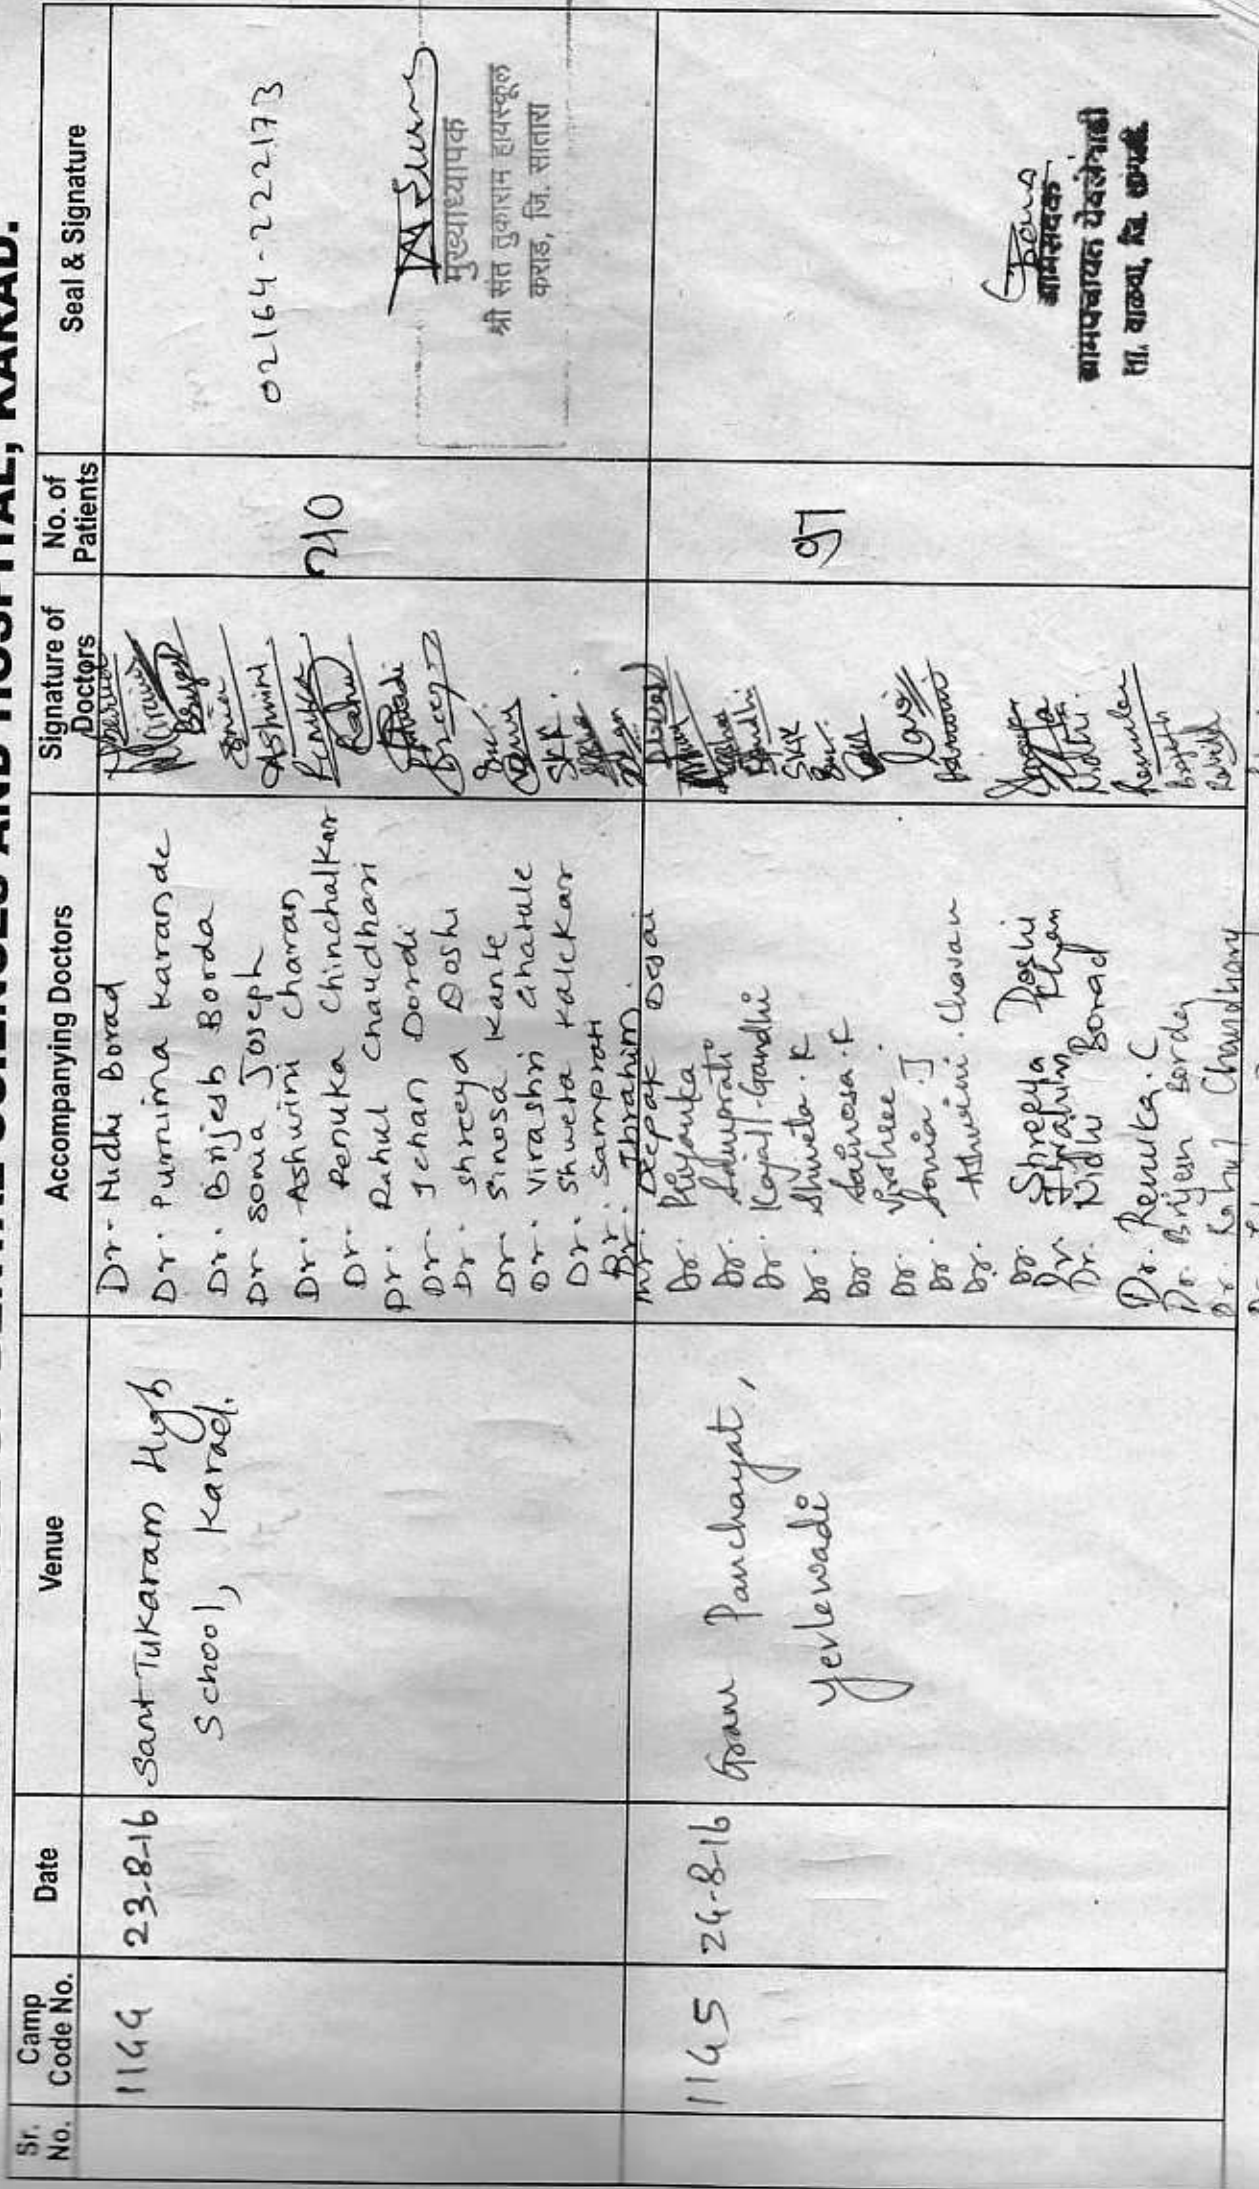 SCIENCES AND HOSPITAL, KARAD.
Sr. No.
Camp Code No.
Date
Venue
Accompanying Doctors
Signature of Doctors
No. of Patients
Seal & Signature
1144
23-8-16
Sant Tukaram High
School, Karad.
Dr. Nidhi Borad
Dr. Purnima Karande
Dr. Brijesh Borda
Dr Sonia Joseph
Dr. Ashwini Charan
Dr. Renuka Chinchalkar
Dr. Rahul Chaudhari
Dr. Ichan Dordi
Dr. Shreeya Doshi
Dr. Sinosa Kante
Dr. Virashri Gharule
Dr. Shweta Kalekar
Dr. Samprati
Dr. Ibrahim.
Mr. Deepak Desai
Brijesh
Sonia
Ashwini.
Renuka
Rahul
Shreeya
SKK
210
02164-222173
मुख्याध्यापक
श्री संत तुकाराम हायस्कूल
कराड, जि. सातारा
1145
24-8-16
Gram Panchayat,
Yevlewadi
Dr. Priyanka
Dr. Samprati
Dr. Kajall. Gandhi
Dr. Shweta. K
Dr. Sainosa. K
Dr. Virshree.
Dr. Sonia. J
Dr. Ashwini. Chavan
Dr. Shreeya Doshi
Dr. Ibrahim Khan
Dr. Nidhi Borad
Dr. Renuka. C
Dr. Brijesh Borda
Dr. Rahul Chaudhary
Gandhi
SKK
Nidhi.
Brijesh
97
ग्रामसेवक
ग्रामपंचायत येवलेवाडी
ता. वाळवा, जि. सांगली.